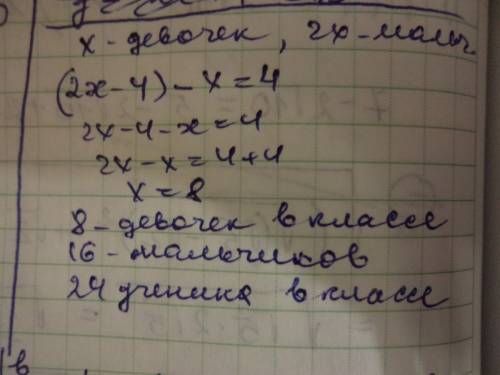 x - девочек, 2x - мальч.
(2x - 4) - x = 4
2x - 4 - x = 4
2x - x = 4 + 4
x = 8
8 - девочек в классе
16 - мальчиков
24 ученика в классе